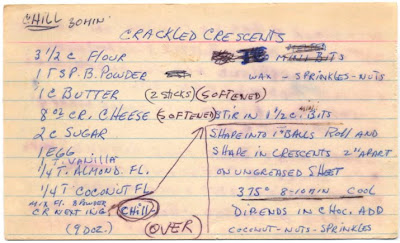 CHILL 30 MIN'
CRACKLED CRESCENTS
3 1/2 C FLOUR
1 TSP. B. POWDER
1 C BUTTER (2 STICKS) (SOFTENED)
8 OZ CR. CHEESE (SOFTENED)
2 C SUGAR
1 EGG
1 T VANILLA
1/4 T. ALMOND. FL.
1/4 T COCONUT FL.
MIX FL. B POWDER
CR NEXT ING. CHILL
(9 DOZ.) (OVER)
MINI BITS
WAX - SPRINKLES - NUTS
STIR IN 1 1/2 C. BITS
SHAPE INTO 1" BALLS ROLL AND
SHAPE IN CRESCENTS 2" APART
ON UNGREASED SHEET
375° 8-10 MIN COOL
DIP ENDS IN CHOC. ADD
COCONUT - NUTS - SPRINKLES